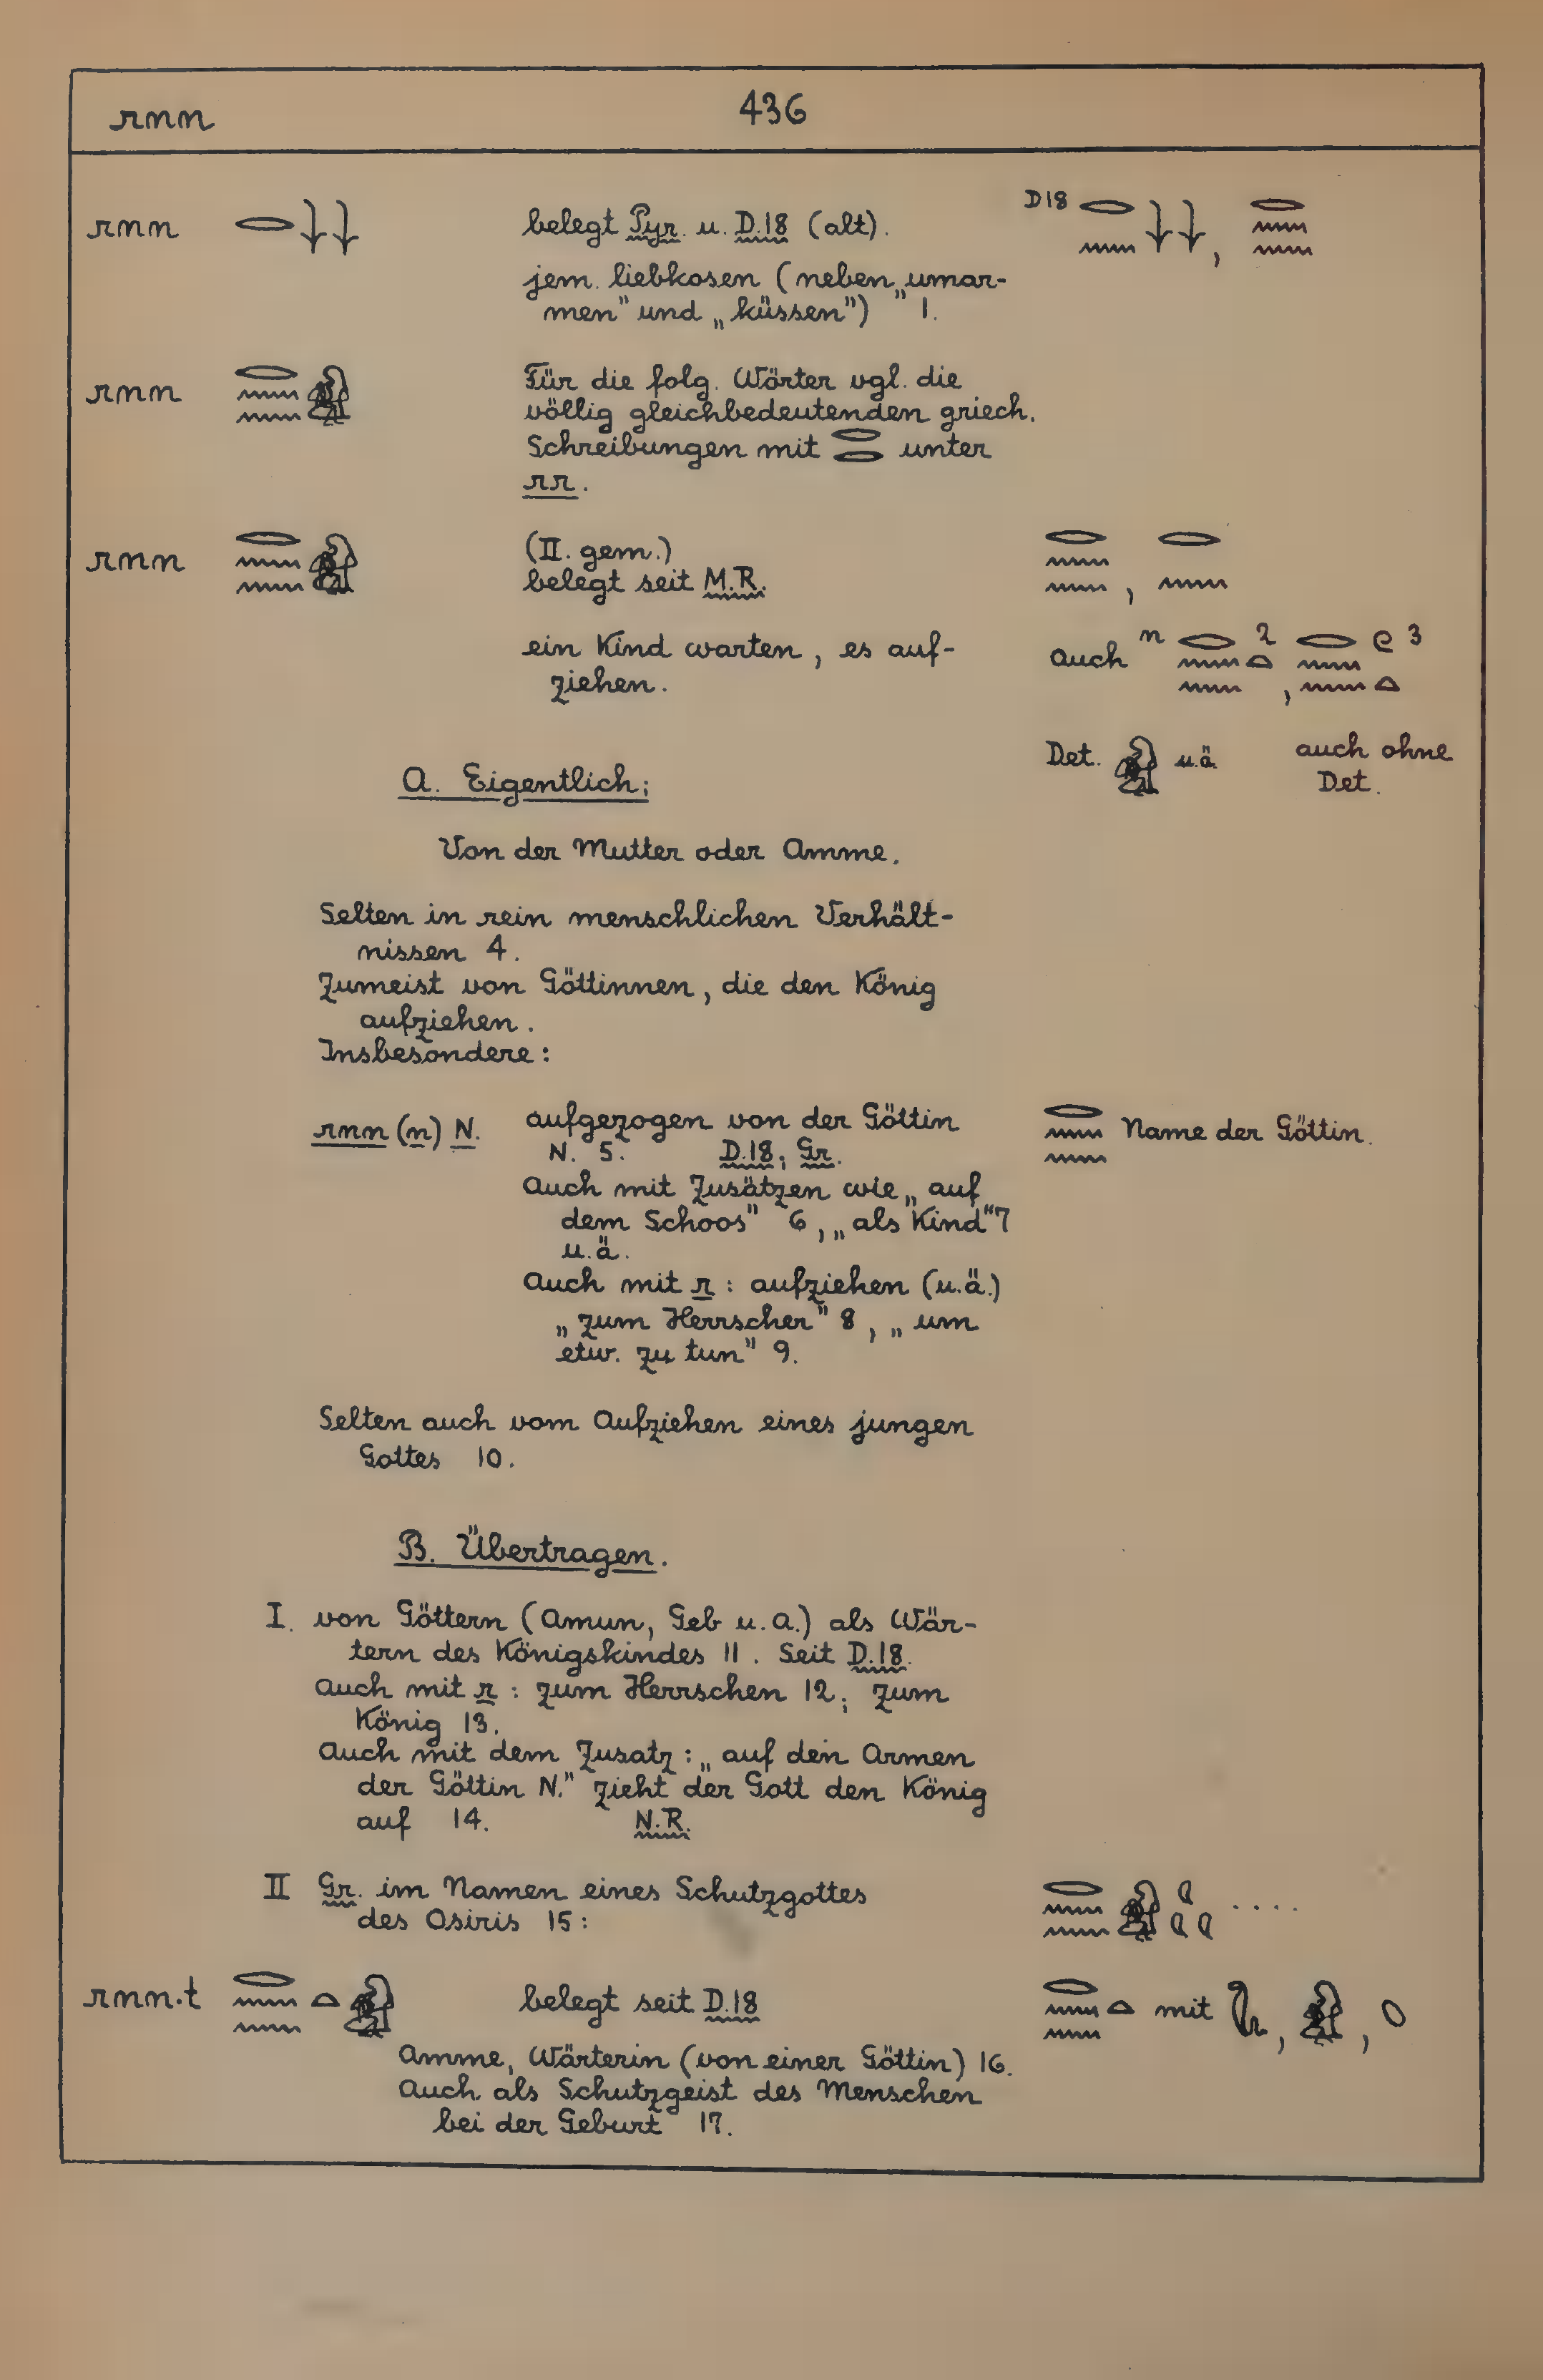 rnn 436
rnn 𓂋𓇓𓇓 belegt Pyr. u. D.18 (alt). D18
jem. liebkosen (neben „umar-
men" und „küssen") 1.
rnn Für die folg. Wörter vgl. die
völlig gleichbedeutenden griech.
Schreibungen mit 𓂋𓂋 unter
rr.
rnn (II. gem.)
belegt seit M.R.
ein Kind warten, es auf-
ziehen.
auch n 2, 3
Det. u.ä. auch ohne
Det.
A. Eigentlich:
Von der Mutter oder Amme.
Selten in rein menschlichen Verhält-
nissen 4.
Zumeist von Göttinnen, die den König
aufziehen.
Insbesondere:
rnn (n) N. aufgezogen von der Göttin 𓂋𓈖𓈖 Name der Göttin.
N. 5. D.18; Gr.
Auch mit Zusätzen wie „auf
dem Schoos" 6, „als Kind" 7
u.ä.
Auch mit r: aufziehen (u.ä.)
„zum Herrscher" 8, „um
etw. zu tun" 9.
Selten auch vom Aufziehen eines jungen
Gottes 10.
B. Übertragen.
I. von Göttern (Amun, Geb u.a.) als Wär-
tern des Königskindes 11. Seit D.18.
Auch mit r: zum Herrschen 12; zum
König 13.
Auch mit dem Zusatz: „auf den Armen
der Göttin N." zieht der Gott den König
auf 14. N.R.
II Gr. im Namen eines Schutzgottes
des Osiris 15: ....
rnn.t belegt seit D.18 𓂋𓈖𓏏𓈖 mit
Amme, Wärterin (von einer Göttin) 16.
Auch als Schutzgeist des Menschen
bei der Geburt 17.